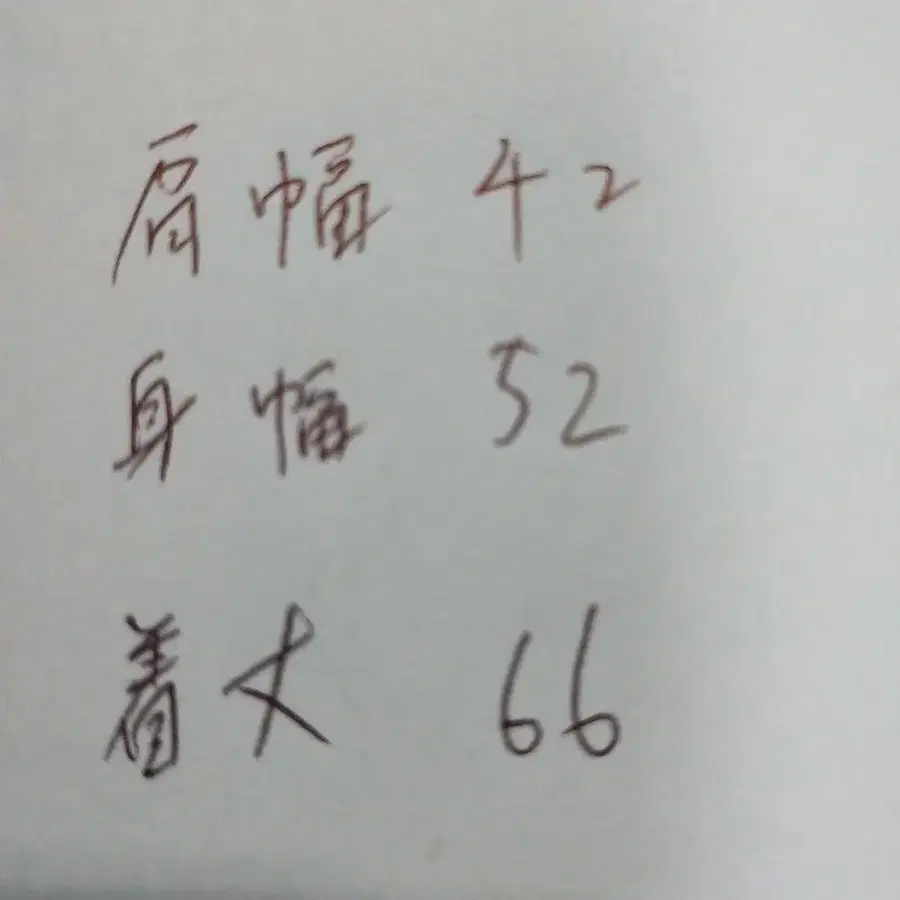 肩幅 42
身幅 52
着丈 66